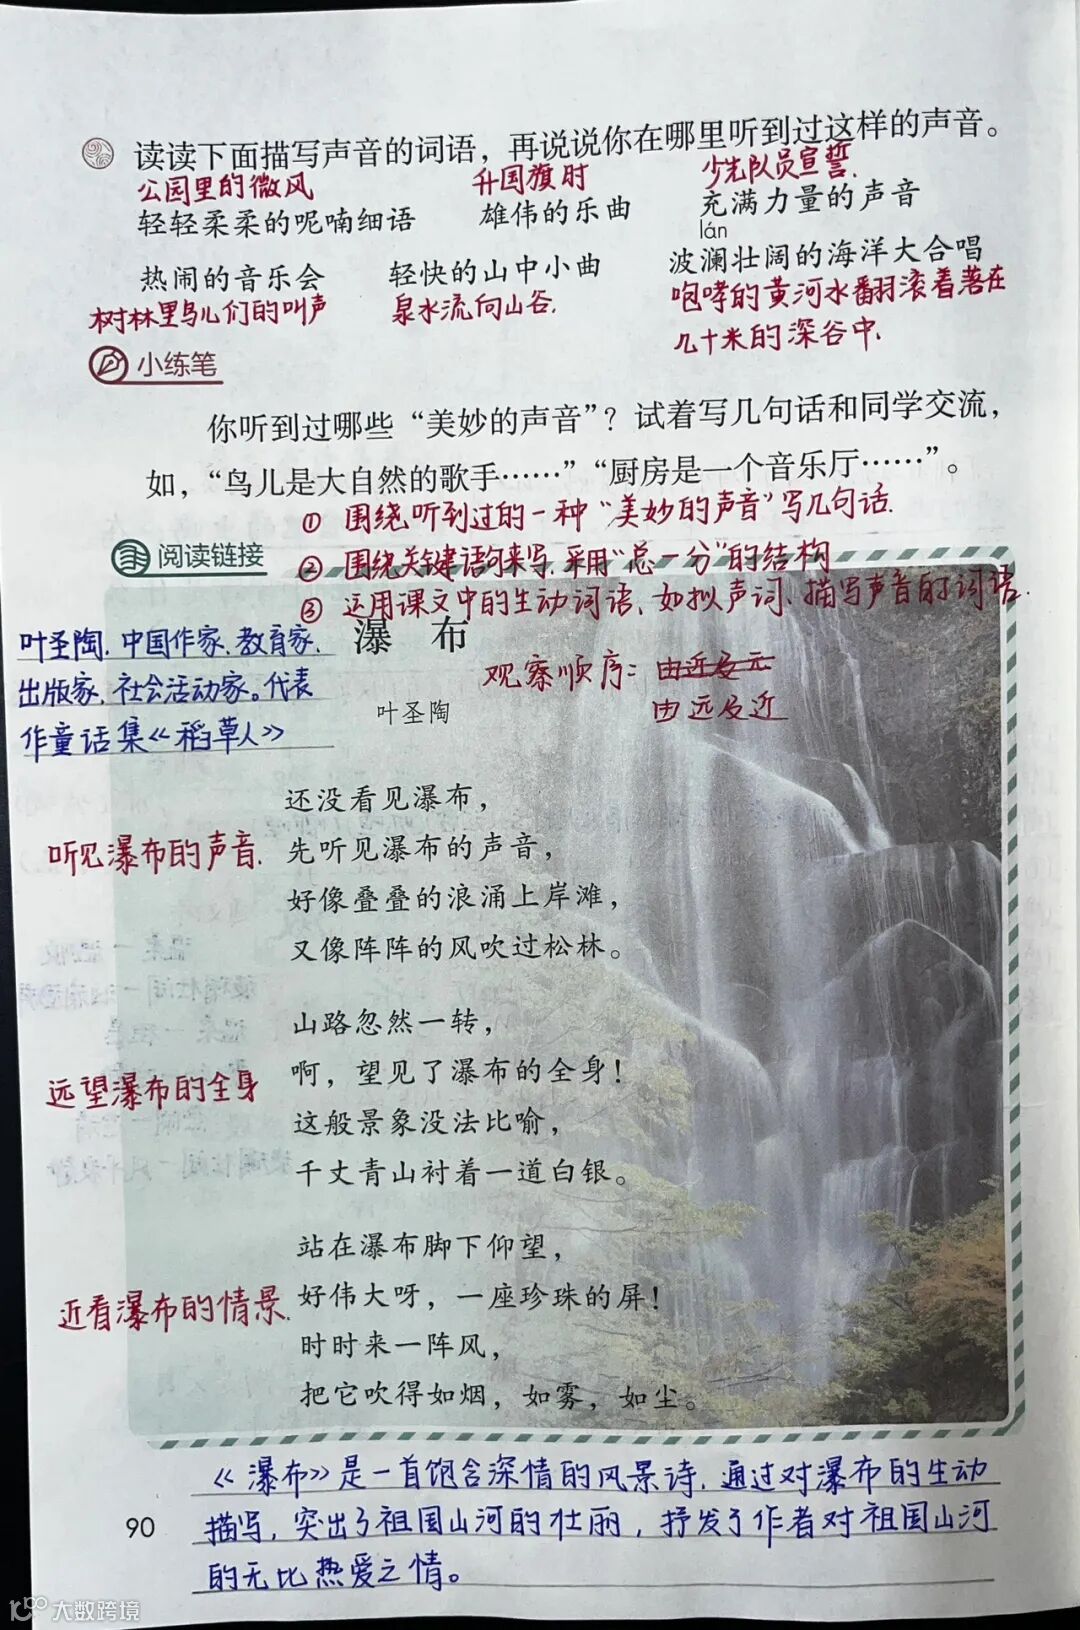 读读下面描写声音的词语，再说说你在哪里听到过这样的声音。
公园里的微风 升国旗时 少先队员宣誓.
轻轻柔柔的呢喃细语 雄伟的乐曲 充满力量的声音
lán
热闹的音乐会 轻快的山中小曲 波澜壮阔的海洋大合唱
树林里鸟儿们的叫声 泉水流向山谷. 咆哮的黄河水翻滚着落在
几十米的深谷中.
小练笔
你听到过哪些“美妙的声音”？试着写几句话和同学交流，
如，“鸟儿是大自然的歌手……”“厨房是一个音乐厅……”。
① 围绕听到过的一种“美妙的声音”写几句话.
阅读链接
② 围绕关键语句来写.采用“总一分”的结构
③ 运用课文中的生动词语、如拟声词、描写声音的词语.
瀑布
叶圣陶
叶圣陶.中国作家.教育家.
出版家.社会活动家。代表
作童话集《稻草人》
观察顺序：由近及元
由远及近
还没看见瀑布，
听见瀑布的声音. 先听见瀑布的声音，
好像叠叠的浪涌上岸滩，
又像阵阵的风吹过松林。
山路忽然一转，
远望瀑布的全身 啊，望见了瀑布的全身！
这般景象没法比喻，
千丈青山衬着一道白银。
站在瀑布脚下仰望，
近看瀑布的情景. 好伟大呀，一座珍珠的屏！
时时来一阵风，
把它吹得如烟，如雾，如尘。
《瀑布》是一首饱含深情的风景诗.通过对瀑布的生动
描写，突出了祖国山河的壮丽，抒发了作者对祖国山河
的无比热爱之情。
90
大数跨境